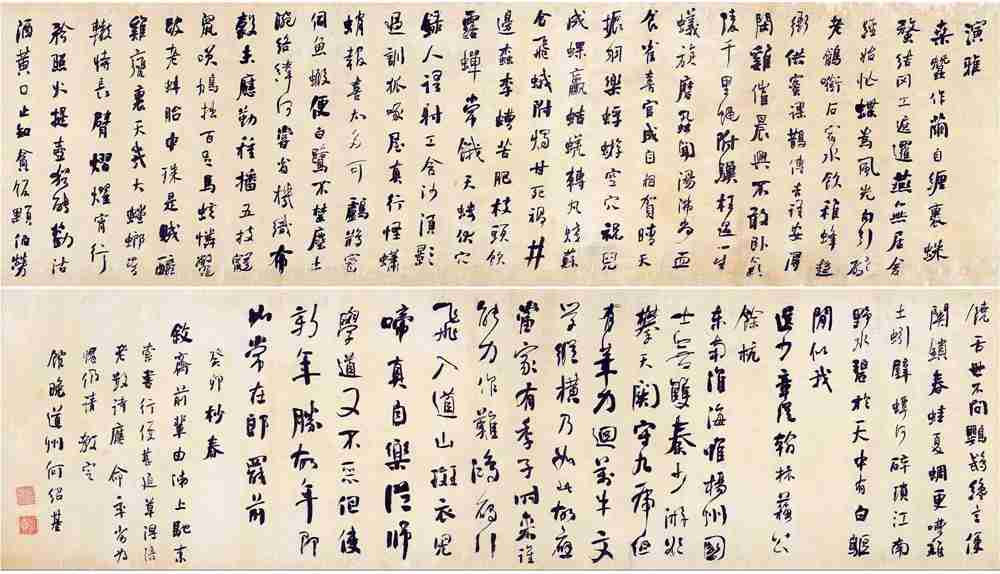 演雅
桑蠶作繭自纏裹蛛
蝥結网工遮邏燕無居舍
經始忙蝶為風光勾引破
老鶬銜石宿水飲稚蜂趨
衙供蜜課鵲傳吉語安得
閒雞催晨興不敢卧氣
陵千里蠅附驥枉過一生
蟻旋磨蝨聞湯沸尚血
食雀喜宮成自相賀晴天
振羽樂蜉蝣空穴祝兒
成蜾蠃蛣蜣轉丸賤蘇
合飛蛾附燭甘死禍井
邊蠹李螬苦肥枝頭飲
露蟬常餓天螻伏穴
錄人語射工含沙須影
過訓狐啄屋真行怪蠨
蛸報喜太多可鸕鶿密
伺魚蝦便白鷺不禁塵土
涴絡緯何嘗省機織布
穀未應勤種播五技鼯
鼠笑鳩拙百足馬蚿憐鼈
跛老蚌胎中珠是賊醯
雞甕裏天幾大螳螂當
轍恃長臂熠燿宵行
矜照火提壺猶能勸沽
酒黃口止知貪飯顆伯勞
饒舌世不問鸚鵡纔言便
關鎖春蛙夏蜩更嘈雜
土蚓壁蟫何碎瑣江南
野水碧於天中有白鷗
閒似我
送少章從翰林蘇公
餘杭
東南淮海惟楊州國
士無雙秦少游欲
攀天關守九虎但
有筆力迴萬牛文
學縱橫乃如此故應
當家有季子時來誰
能力作難鴻雁行
飛入道山斑衣兒
啼真自樂從師
學道又不惡但使
新年勝故年即
如常在郎罷前
癸卯杪春
敘齋前輩由海上馳來
索書行甚迫草
老詩應命率劣為
愧仍請教定
館晚道州何紹基